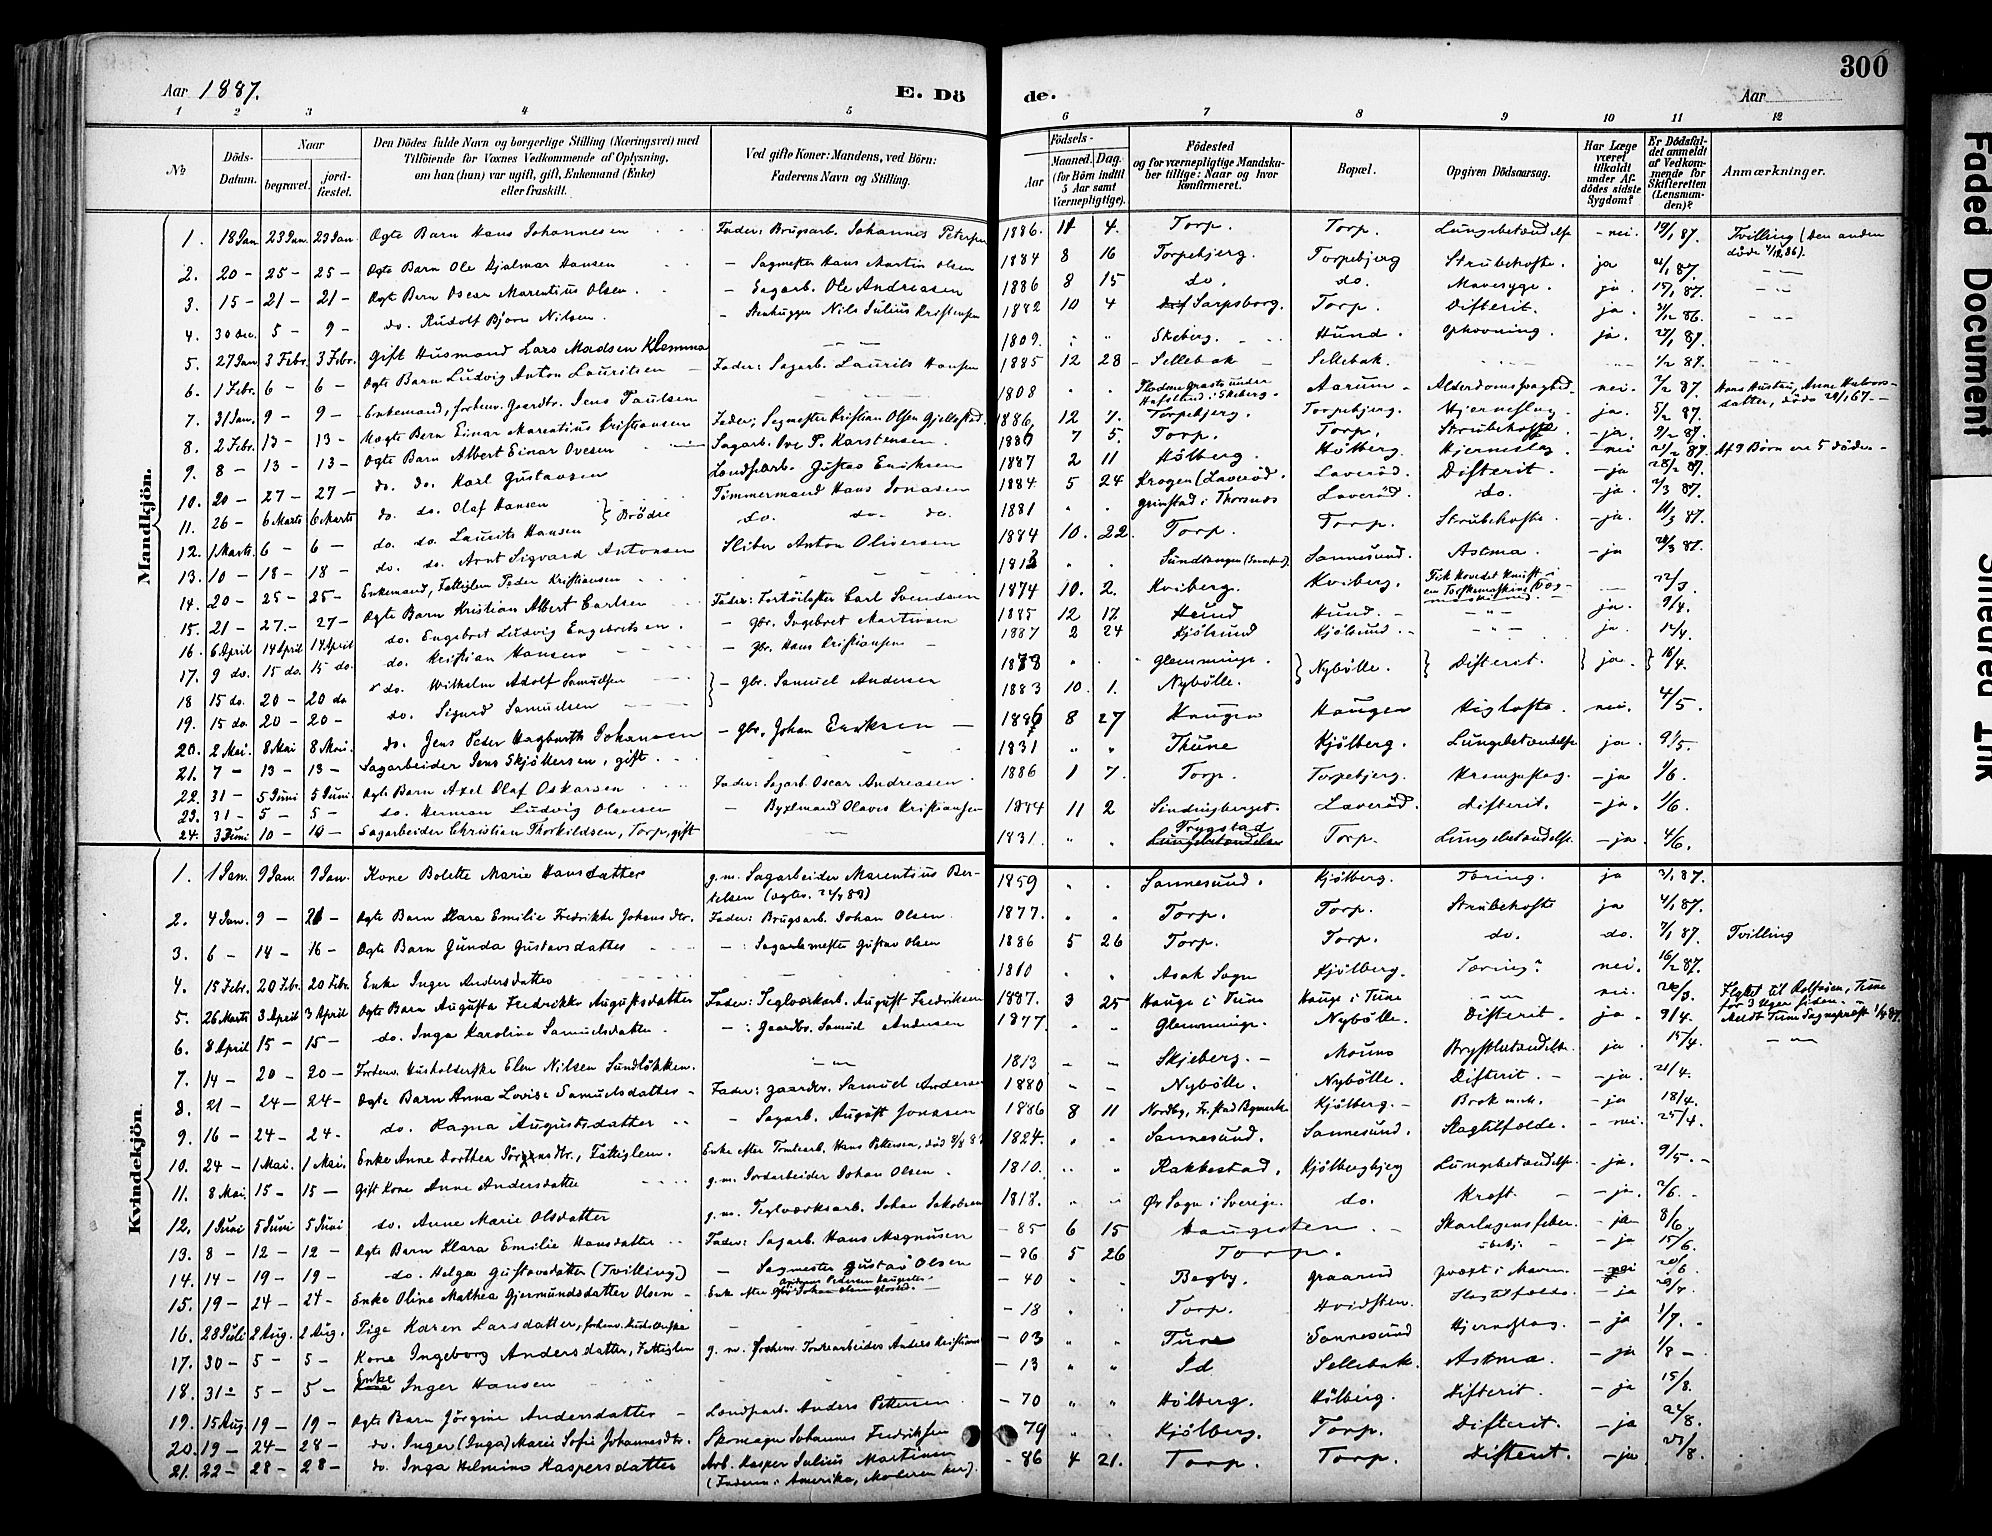 300
Aar 1887.
E. Döde.
Aar
1 2 3 4 5 6 7 8 9 10 11 12
No
Döds-Datum.
Naar
begravet.
jordfæstet.
Den Dödes fulde Navn og borgerlige Stilling (Næringsvei) med
Tilföiende for Voxnes Vedkommende af Oplysning,
om han (hun) var ugift, gift, Enkemand (Enke)
eller fraskilt.
Ved gifte Koner: Mandens, ved Börn:
Faderens Navn og Stilling.
Födsels-
Aar
Maaned. Dag.
(for Börn indtil
5 Aar samt
Værnepligtige).
Födested
og for værnepligtige Mandsku-
ber tillige: Naar og hvor
konfirmeret.
Bopæl.
Opgiven Dödsaarsag.
Har Læge
været
tilkaldt
under Af-
dödes sidste
Sygdom?
Er Dödsfal-
det anmeldt
af Vedkom-
mende for
Skifteretten
(Lensman-
den)?
Anmærkninger.
Mandkjön.
1. 18 Jan 23 Jan. 23 Jan Ægte Barn Hans Johannesen Fader: Brugsarb. Johannes Petersen 1886. 11 4. Torp. Torp. Lungebetændelse nei. 19/1 87. Tvilling (den anden
2. 20 - 25 - 25 - Ægte Barn Ole Hjalmar Hansen - Sagmester Hans Martin Olsen 1884 8 16 Torpebjerg. Torpebjerg Strubehoste. ja
3. 15 - 21 - 21 - Ægte Barn Oscar Marentius Olsen. - Sagarb. Ole Andreassen 1886 8 15 do. do. Mavesyge. ja. 17/1 87.
4. 30 Dec. 5 - 9 - do. Rudolf Bjørn Nilsen. - Stenhugger Nils Julius Kristensen 1882 10 4 Sarpsborg. Torp. Difterit. ja.
5. 27 Jan 3 Febr. 3 Febr. Gift Husmand Lars Madsen Klemma 1809. Skeberg. Hund. Ophovning. ja.
6. 1 Febr. 6 - 6 - Ægte Barn Ludvig Anton Lauritsen Fader: Sagarb. Laurits Hansen 1885 12 28 Sellebak Sellebak. 1/2 87.
7. 31 Jan. 9 - 9 - Enkemand, forhenv. Gaardbr. Jens Paulsen 1808 Hafslund i Skeberg. Aarum Alderdomssvaghed. nei. 7/2 87. Hans Hustru, Anne
8. 2 Febr. 13 - 13 - Uægte Barn Einar Marentius Kristiansen Fader: Sagmester Kristian Olsen 1886 12 7. Torpebjerg. Torpebjerg. Hjerneslag. ja. 5/2 87.
9. 8 - 13 - 13 - Ægte Barn Albert Einar Ovesen Sagarb. Ove P. Karstensen. 1886 7 5. Torp. Torp. Strubehoste ja. 9/2 87.
10. 20 - 27 - 27 - do. do. Karl Gustavsen Landharb. Gustav Eriksen 1887 2 11 Hölberg. Hölberg. Hjerneslag nei Af 9 Börn ere 5 döde.
11. 26 - 6 Marts 6 Marts do. do. Olaf Hansen } Brödre Tömmermand Hans Jonasen 1884. 5 24 Krogen (Laveröd. Laveröd. Difterit. ja
12. 1 Marts. 6 - 6 - do. do. Laurits Hansen do. do. do. 1881 Grimstad i Thorsnæs Laveröd. do. ja.
13. 10 - 18 - 18 - do. do. Arnt Sigvard Antonsen Sliber Anton Oliversen 1884 10. 22. Torp. Torp. Strubehoste. ja.
14. 20 - 25 - 25 - Enkemand, Fattiglem Peder Kristiansen 1813 Sannesund. Astma. ja
15. 21 - 27. - 27 - Ægte Barn Kristian Albert Carlsen Fader: Carl Svendsen 1874 10. 2. Kviberg. Kviberg. 22/3.
16. 6 April 14 April 14 April do. Engebret Ludvig Engebretsen. - Gbr. Ingebret Martinsen 1885 12 17. Hund Hund. ja. 9/4.
17. 9 do. 15 do. 15 do. do. Kristian Hansen - Gbr. Hans Kristiansen 1887 2 24 Kjölsund Kjölsund. ja. 12/4.
18 15 do. 20 - 20 do do. Wilhelm Adolf Samuelsen } - Gbr. Samuel Andersen 1878 Glemminge. } Nybölle. } Difterit. } ja. } 16/4.
19. 15 do. 20 - 20 - do. Sigurd Samuelsen 1883 10. 1. Nybölle.
20. 2 Mai. 8 Mai 8 Mai. do. Jens Peder Hagbarth Johansen - Gbr. Johan Eriksen 1886 8 27 Haugen Haugen Kighoste. nei. 4/5.
21. 7 - 13 - 13 - Sagarbeider Jens Skjöllersen, gift. 1831 Thune Kjölberg. Lungebetændelse ja. 9/5.
22. 31 - 5 Juni 5 Juni. Ægte Barn Axel Olaf Oskarsen Fader: Sagarb. Oscar Andreasen 1886 1 7. Torp. Torpebjerg. Krampeslag. ja 1/6.
23. 31 - 5 - 5 - do. Herman Ludvig Olavesen - Byxelmand Olaves Kristiansen 1884 11 2 Laveröd. Difterit. ja. 1/6.
24. 3 Juni 10 - 10 - Sagarbeider Christian Thorkildsen, Torp, gift 1831. Trygstad Lungebetændelse Torp. Lungebetændelse. ja. 4/6.
Kvindekjön.
1. 1 Jan. 9 Jan. 9 Jan. Kone Bolette Marie Hansdatter g. m. Sagarbeider Marentius Ber-
telsen 1859 Sannesund. Kjölberg. Tæring. ja 3/1 87.
2. 4 Jan. 9 - 26 - Ægte Barn Klara Emilie Fredrikke Johansdtr. Fader: Brugsarb. Johan Olsen. 1877. Torp. Torp. Strubehoste ja 4/1 87.
3. 6 - 14 - 16 - Ægte Barn Gunda Gustavsdatter - : Sagarb.mester Gustav Olsen 1886 5 26 Torp. Torp. do. do. 7/1 87. Tvilling
4. 15 Febr. 20 Febr. 20 Febr. Enke Inger Andersdatter 1810 Asak Sogn Kjölberg. Tæring? nei. 16/2 87.
5. 26 Marts 3 April 3 April Ægte Barn Augusta Fredrikke Augustsdatter Fader: Teglværkarb. August Fredriksen 1887. 3 25 Hauge i Tune Hauge i Tune nei. Flyttet til Rolfsöen, Tune
for 3 Uger siden.
6. 8 April 15 - 15 - do. Inga Karoline Samuelsdatter. - : Gaardbr. Samuel Andersen 1877. Glemminge. Nybölle. Difterit. ja. 9/4. Meldt Tune Sognepræst
7. 14 - 20 - 20 - Forhenv. Husholderske Elen Nilsen Sundlökken. 1813 Skjeberg. - Moum Brystbetændelse. ja. 15/4.
8. 21 - 24 - 24 - Ægte Barn Anna Lovise Samuelsdatter - Fader: Gaardbr. Samuel Andersen 1880 Nybölle. Nybölle. Difterit. - ja. 21/4.
9. 16 - 24 - 24 - do. Ragna Augustsdatter - Sagarb. August Jonasen 1886 8 11 Nordby, Fr.stad Bymark. Kjölberg. - Brok m.m. ja 18/4.
10. 24 - 1 Mai. 1 Mai. Enke Anne Dorthea Jörgensdtr., Fattiglem. Enke efter Tomtearb. Hans Pettersen, död 1824. Sannesund. Sannesund. Slagtilfælde. nei. 25/4.
11. 8 Mai. 15 - 15 - Gift Kone Anne Andersdatter g. m. Jordarbeider Johan Olsen. 1810. Rakkestad. Kjölbergbjerg Lungebetændelse. ja. 9/5. -
12. 1 Juni 5 Juni 5 Juni do. Anne Marie Olsdatter g. m. Teglværksarb. Johan Jakobsen 1818. Ör Sogn i Sverige. do. Kræft - ja. 2/6. -
13. 8 - 12 - 12 - Ægte Barn Klara Emilie Hansdatter Fader: Sagarb. Hans Magnusen - 85 6 15 Haugesten. Skarlagensfeber. ja 8/6
14. 14 - 19 - 19 - do. Helga Gustavsdatter (Tvilling) - Sagmester Gustav Olsen - 86 5 26 Torp. ubekj. ja 15/6.
15. 19 - 24 - 24 - Enke Oline Mathea Gjermundsdatter Olsen - Enke efter - 40 Begby. Graarud nei
16. 28 Juli 2 Aug. 2 Aug. Pige Karen Larsdatter, - 18 Torp. Hvidsten. Slagtilfælde ja
17. 30 - 5 - 5 - Kone Ingeborg Andersdatter, Fattiglem g. m. forhenv. Tomtearbeider Anders Kristians - 03 Tune Sannesund Hjerneslag. ja 1/7.
18. 31 - 5 - 5 - Enke Kone Inger Hansen - 13 Id Sellebak. Astma. ja 1/8 -
19. 15 Aug. 19 - 19 - Ægte Barn Jörgine Andersdatter - Landharb. Anders Pettersen - 70 Hölberg. Hölberg. Difterit. ja 15/8.
20. 19 - 24 - 28 - do. Inger (Inga) Marie Sofie Johannesdtr. Skomager Johannes Fredriksen - 79 Kjölberg. Torp. Difterit. ja
21. 22 - 28 - 28 - do. Inga Helmine Kaspersdatter Arb. Kasper Julius Martinsen - 86 4 21. Torp. Torp. Difterit. ja
(Faderen i Amerika, Moderen her).
Faded Document
Smeared Ink